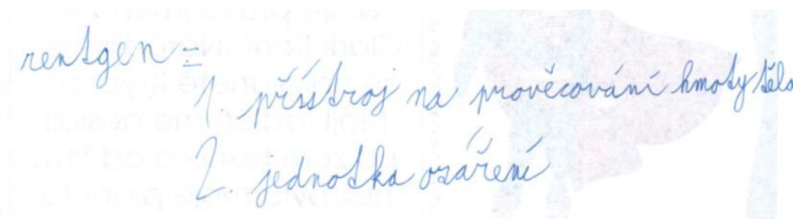 rentgen =
1. přístroj na prověcování hmoty těla
2. jednotka ozáření